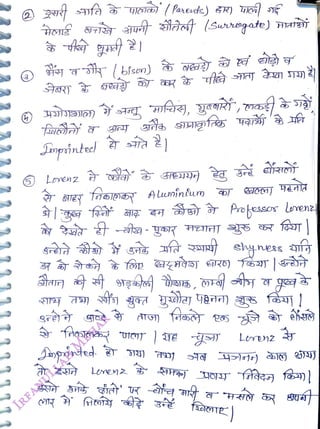 ② दूसरी जाति के पालकों (Parents) द्वारा पाली गई
मेलार्ड बत्तखें अपनी सौतेली (Surrogate) माताओं
के पीछे घूमती हैं।
③ भैंस व गौर (bison) के बछड़ों को एवं घोड़ों व
जेबरा के बछड़ों को कार के पीछे जाता देखा गया है।
④ प्रयोगशाला में जन्तु माचिस, गुब्बारों, लकड़ी के गट्टों,
खिलौनों व अन्य अनेक अप्राकृतिक पदार्थों के प्रति
Imprinted हो जाते हैं।
⑤ Lorenz ने कौवों के अध्ययन हेतु उन्हें घोंसलों
से बाहर निकालकर Aluminium का छल्ला पहनाते
थे। कुछ दिनों बाद इन कौओं ने Professor Lorenz
को देखते ही चीख-पुकार मचाना शुरू कर दिया।
उन्होंने कौओं में उनके प्रति स्थायी shyness यानि
डर को रोकने के लिए छद्मवेश धारण किया। उन्होंने
शैतान की सी भड़कीली पोशाक, लम्बी जीभ व पूंछ के
साथ तथा सींग युक्त मुखौटा पहनना शुरू किया।
उन्होंने अण्डे से ताजा निकले एक चूजे को घोंसले
से निकालकर पाला। यह चूजा Lorenz से
Imprinted हो गया तथा जब प्रजनन काल आया
तो उसने Lorenz के समक्ष प्रणय निवेदन किया।
उसने उनके दांतों पर चोंच मारी व मसले कर अपनी
लार में मिलाये कीड़े उन्हें खिलाए।